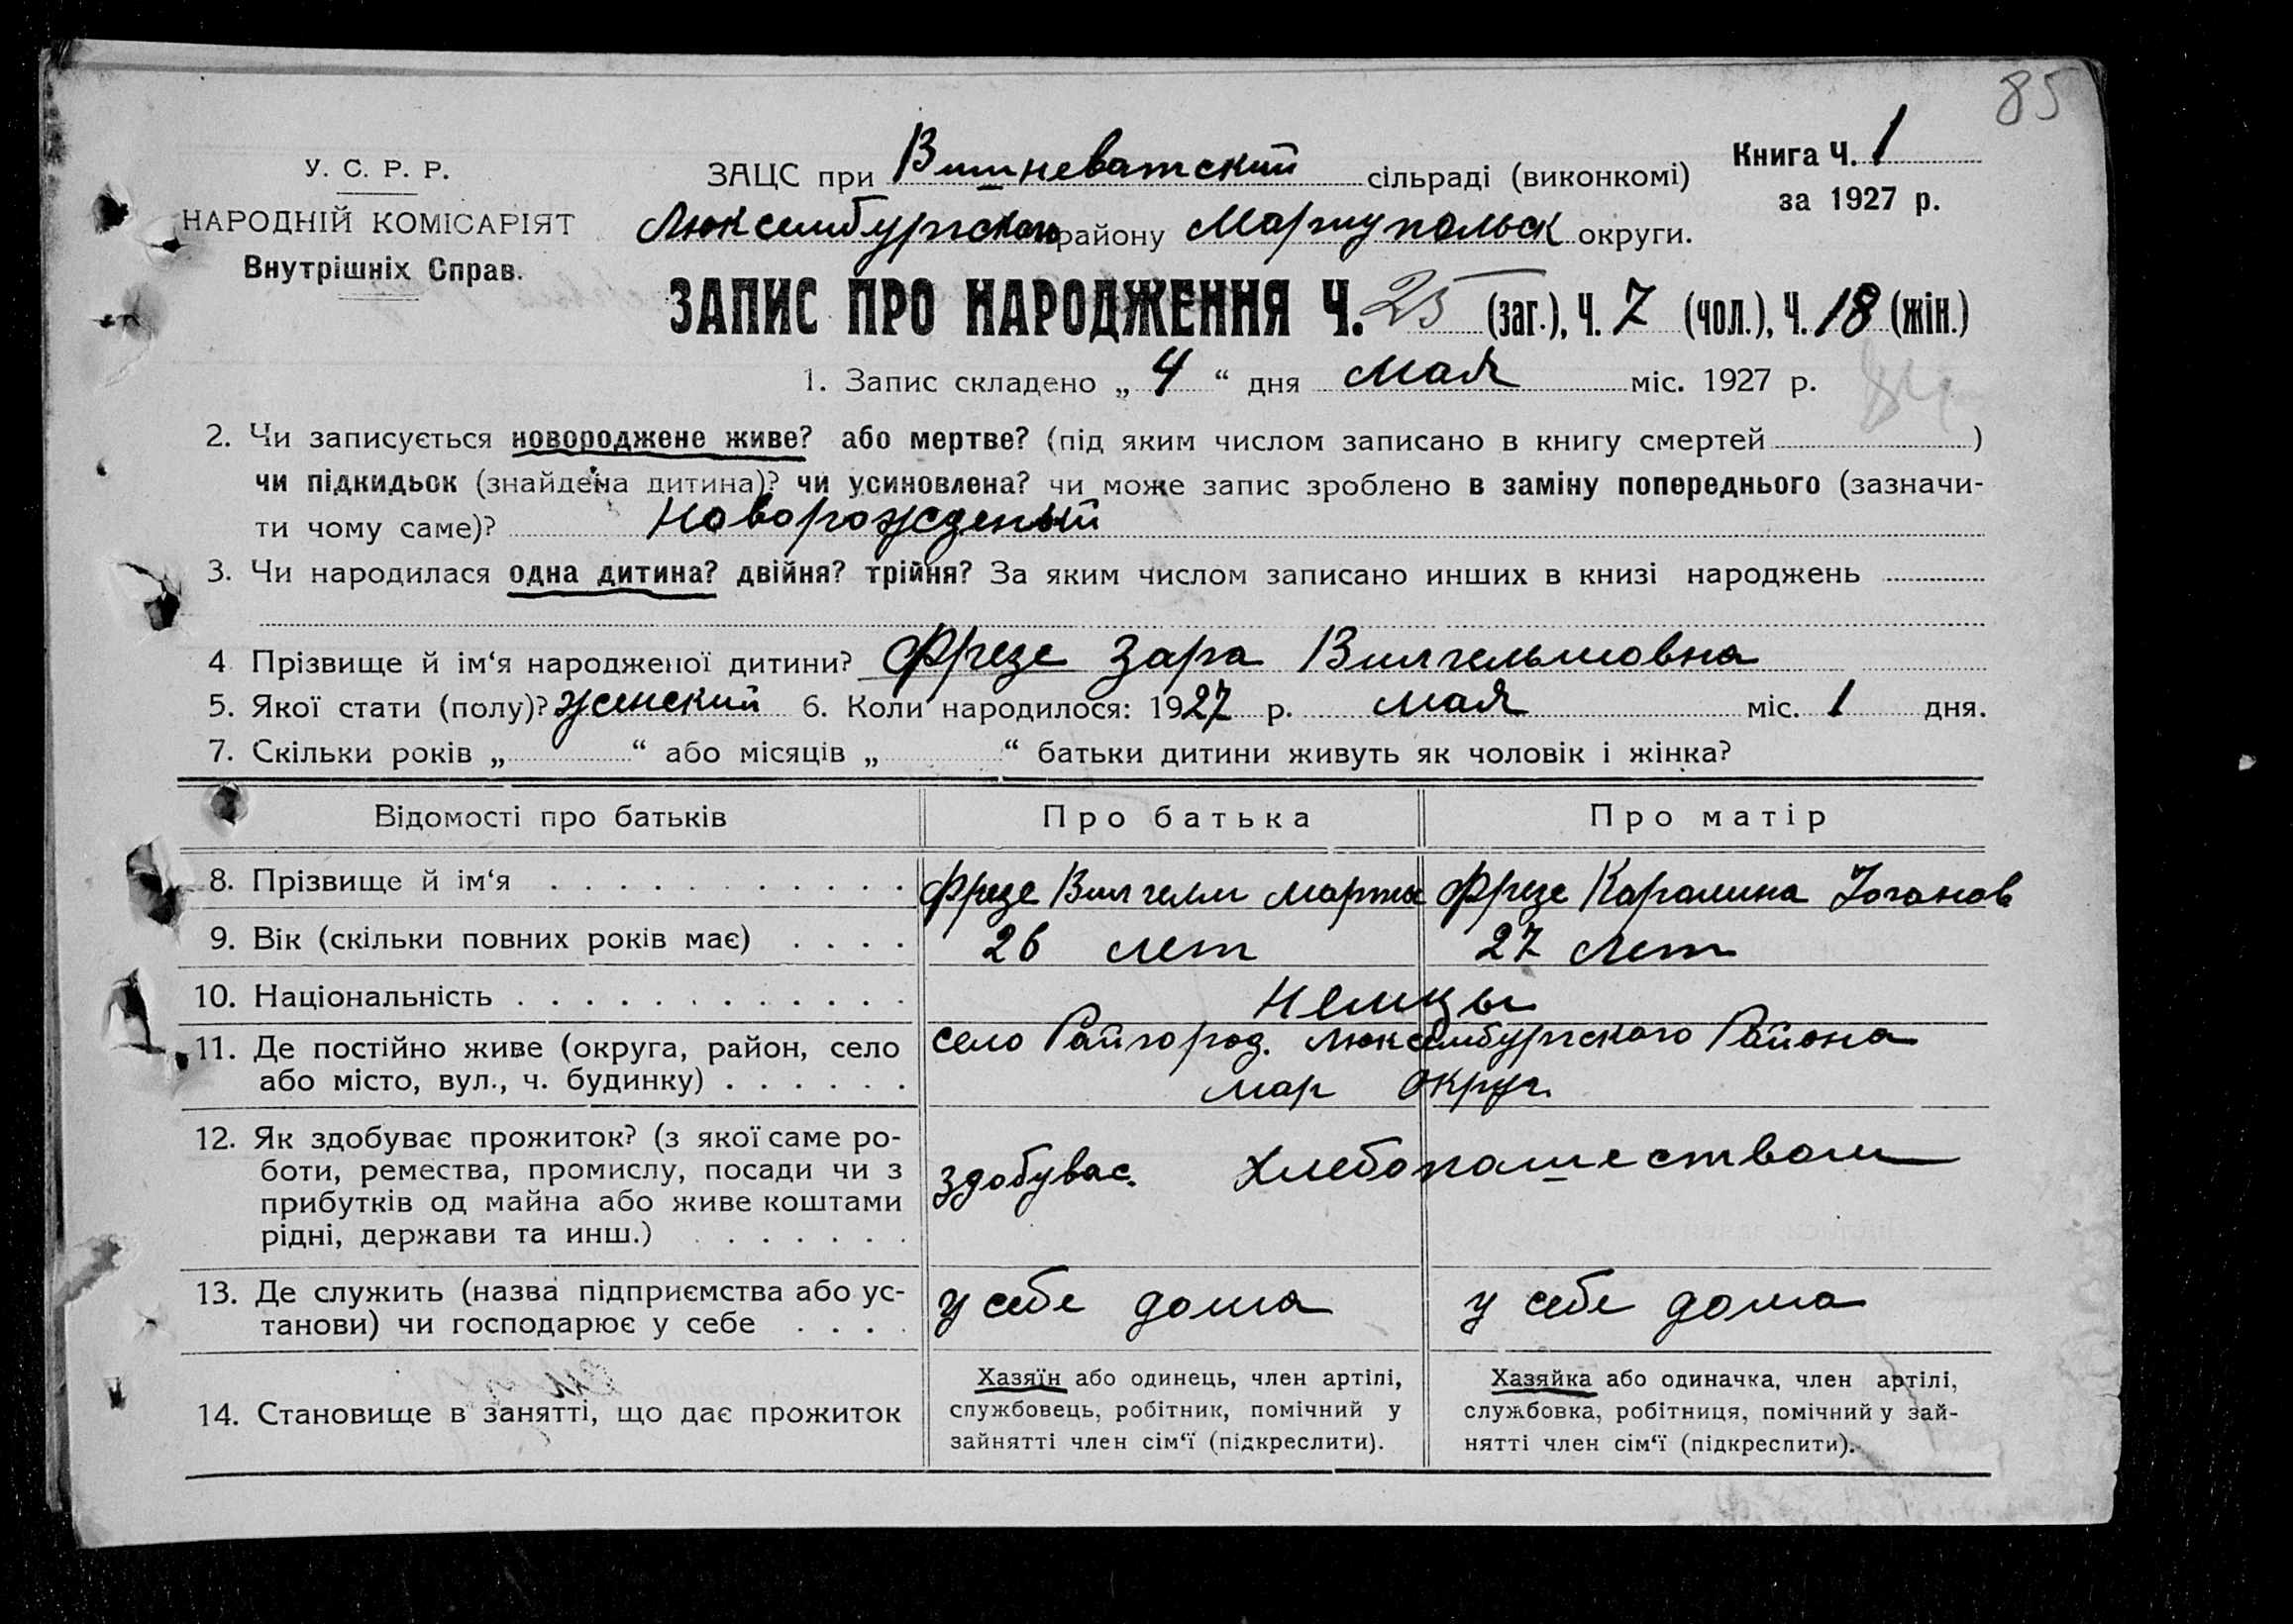 85
У. С. Р. Р.
НАРОДНІЙ КОМІСАРІЯТ
Внутрішніх Справ.
ЗАЦС при Вишневатский сільраді (виконкомі)
Книга Ч. 1
за 1927 р.
Люксембургского району Мариупольск округи.
ЗАПИС ПРО НАРОДЖЕННЯ Ч. 25 (заг.), Ч. 7 (чол.), Ч. 18 (жін.)
1. Запис складено „ 4 “ дня мая міс. 1927 р.
84
2. Чи записується новороджене живе? або мертве? (під яким числом записано в книгу смертей )
чи підкидьок (знайдена дитина)? чи усиновлена? чи може запис зроблено в заміну попереднього (зазначи-
ти чому саме)? Новорожденый
3. Чи народилася одна дитина? двійня? трійня? За яким числом записано инших в книзі народжень
4 Прізвище й ім‘я народженої дитини? Фрезе Зара Вилгельмовна
5. Якої стати (полу)? женский 6. Коли народилося: 1927 р. мая міс. 1 дня.
7. Скільки років „ “ або місяців „ “ батьки дитини живуть як чоловік і жінка?
Відомості про батьків Про батька Про матір
8. Прізвище й ім‘я Фрезе Вилгелм Фрезе Каралина Иоганов
9. Вік (скільки повних років має) 26 лет 27 лет
10. Національність Немцы
11. Де постійно живе (округа, район, село
або місто, вул., ч. будинку)
село Райгород. Люксембургского Района
мар округ.
12. Як здобуває прожиток? (з якої саме ро-
боти, ремества, промислу, посади чи з
прибутків од майна або живе коштами
рідні, держави та инш.)
здобувае. Хлебопашеством
13. Де служить (назва підприємства або ус-
танови) чи господарює у себе
у себе дома у себе дома
14. Становище в занятті, що дає прожиток
Хазяїн або одинець, член артілі,
службовець, робітник, помічний у
зайнятті член сім‘ї (підкреслити).
Хазяйка або одиначка, член артілі,
службовка, робітниця, помічний у зай-
нятті член сім‘ї (підкреслити).